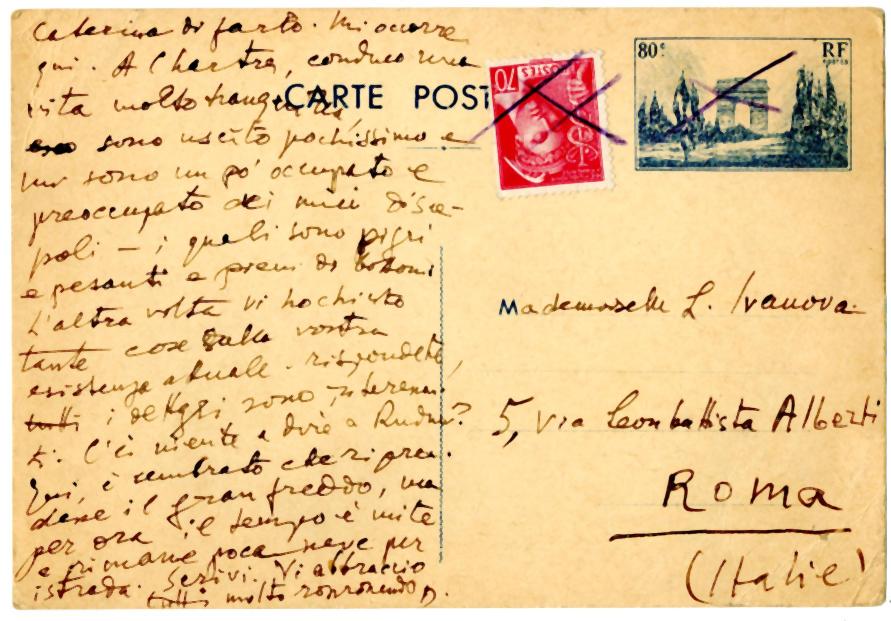 Caterina di farlo. Mi occorre
qui. A Chartres, conduco una
vita molto tranquilla,
sono uscito pochissimo e
mi sono un po' occupato e
preoccupato dei miei disce-
poli — i quali sono pigri
e pesanti e pieni di
L'altra volta vi ho chiesto
tante cose sulla vostra
esistenza attuale. rispondete,
tutti i dettagli sono interessan-
ti. C'è niente a dire a ?
Qui, è sembrato che ripren-
desse il gran freddo, ma
per ora il tempo è mite
e rimane poca neve per
istrada. Scrivi. Vi abbraccio
tutti molto ronronando D.
CARTE POST
70
POSTES
80c
RF
POSTES
Mademoiselle L. Ivanova
5, Via Leonbattista Alberti
Roma
(Italie)